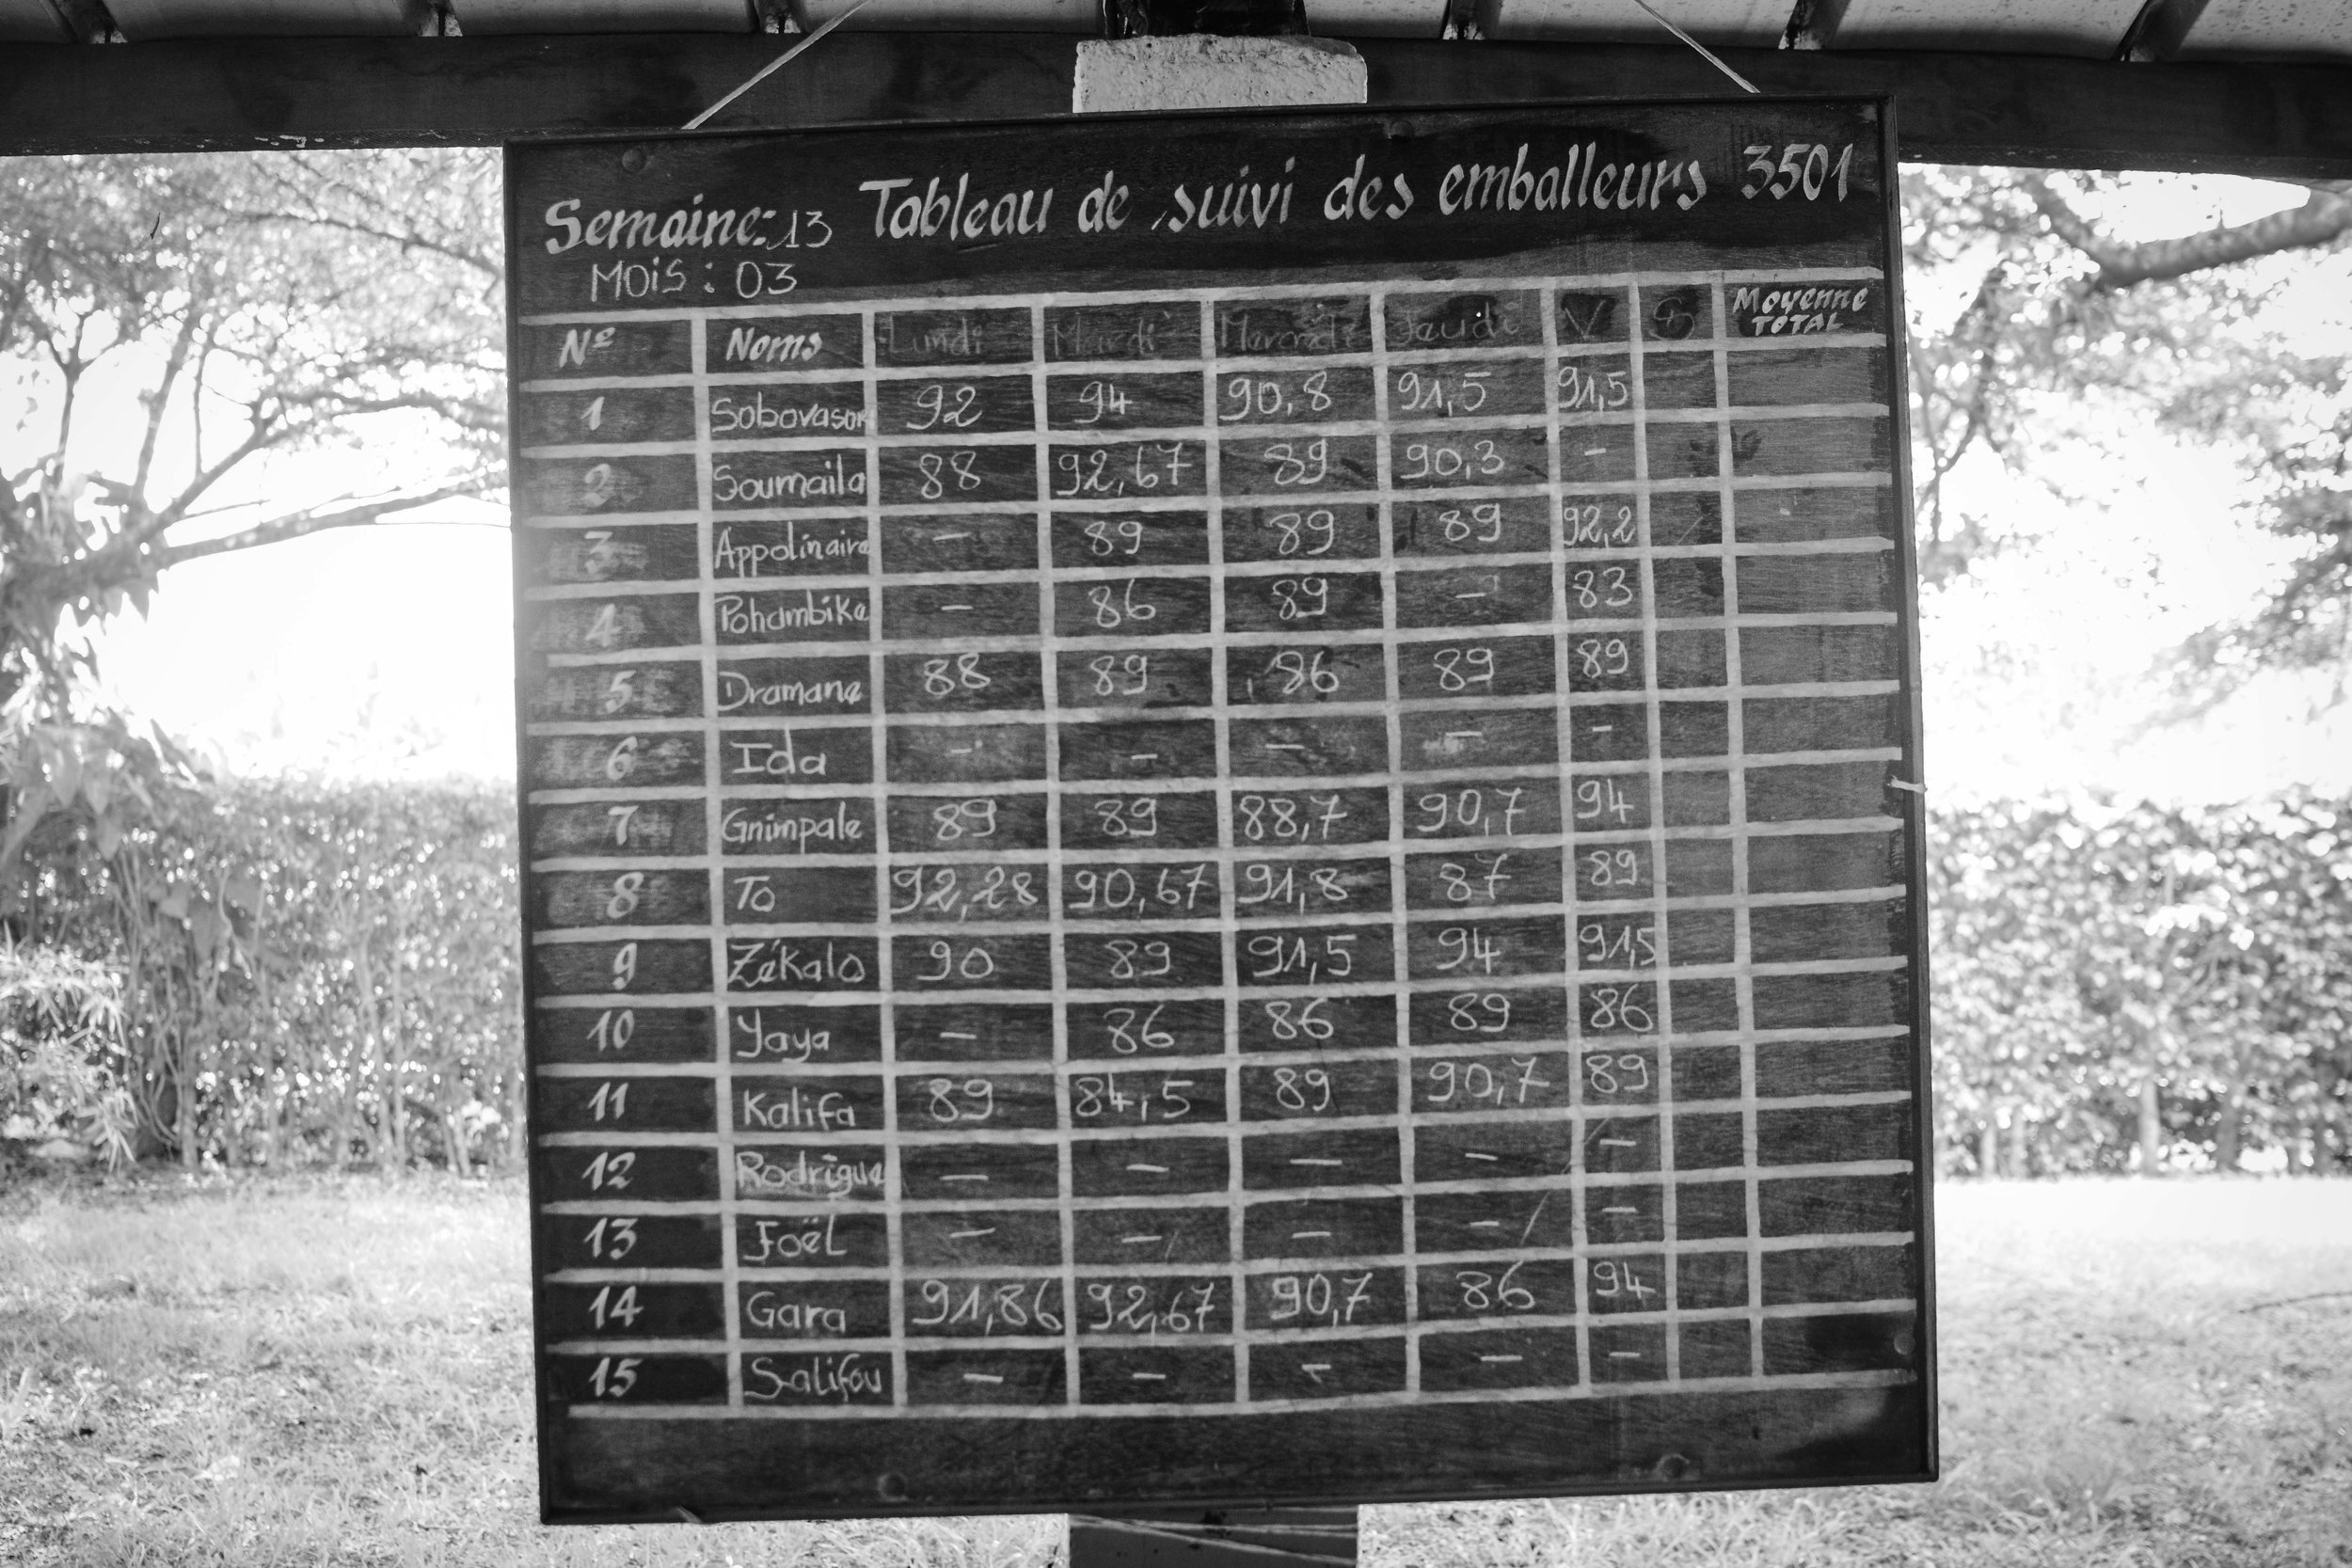 Semaine: 13 Tableau de suivi des emballeurs 3501
Mois : 03
Nº Noms Lundi Mardi Mercredi Jeudi V S Moyenne TOTAL
1 Sobovason 92 94 90,8 91,5 91,5
2 Soumaila 88 92,67 89 90,3 -
3 Appolinaire - 89 89 89 92,2
4 Pohambike - 86 89 - 83
5 Dramane 88 89 86 89 89
6 Ida - - - - -
7 Gnimpale 89 89 88,7 90,7 94
8 To 92,28 90,67 91,8 87 89
9 Zékalo 90 89 91,5 94 91,5
10 Yaya - 86 86 89 86
11 Kalifa 89 84,5 89 90,7 89
12 Rodrigue - - - - -
13 Joël - - - - -
14 Gara 91,86 92,67 90,7 86 94
15 Salifou - - - - -